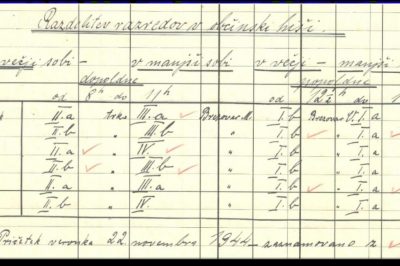 Razdelitev razredov v občinski hiši.
večji sobi - v manjši sobi v večji - manjši
dopoldne popoldne
od 8h do 11h od 12½h do 1
II.a Arko III.a Brezovar M. I.b Brezovar V. I.a
II.b " III.b " I.b " I.a
II.a " IV. " I.b " I.a
II.b " III.b " I.b " I.a
II.a " III.a " I.b " I.a
II.b " IV. " I.b " I.a
Pričetek veronka 22. novembra 1944 - zaznamovano z